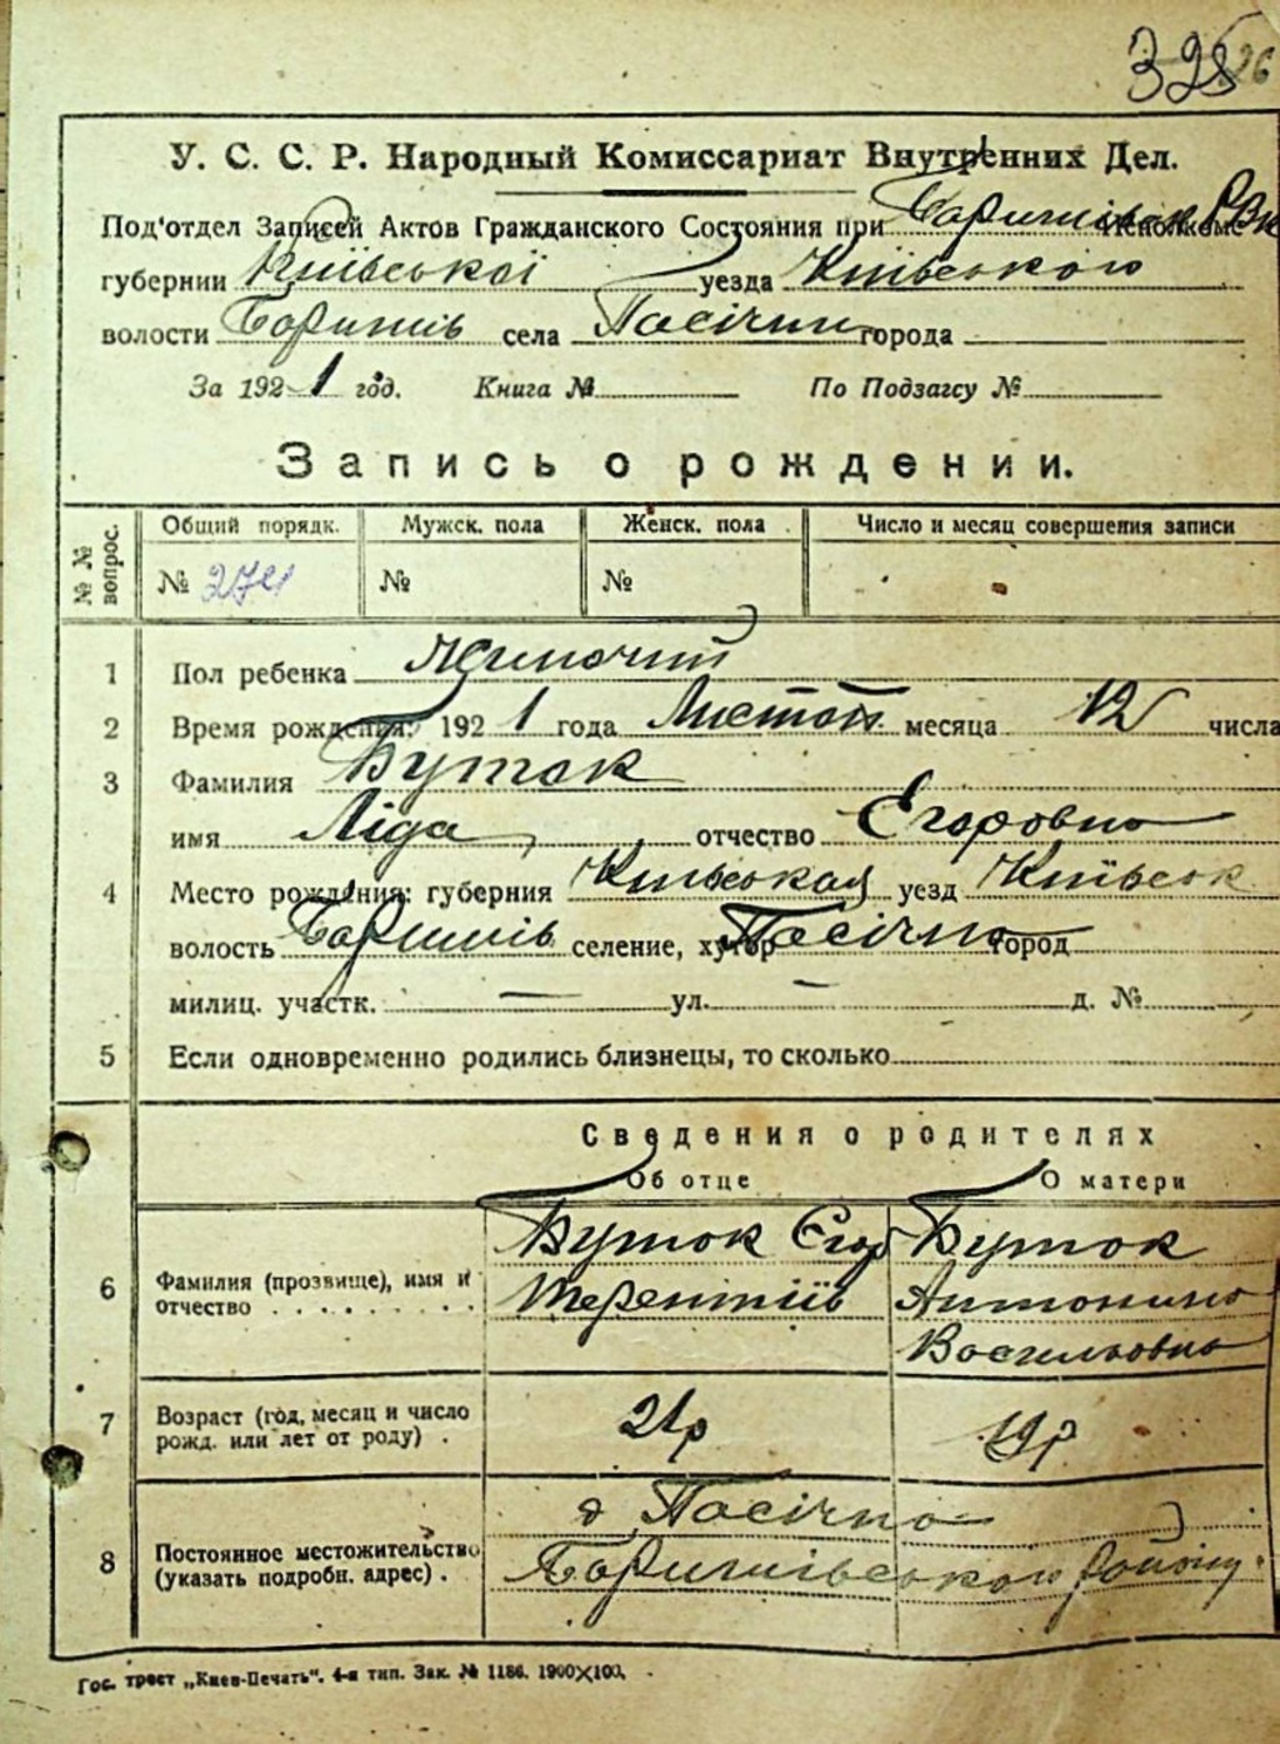 328 26
У. С. С. Р. Народный Комиссариат Внутренних Дел.
Под'отдел Записей Актов Гражданского Состояния при Баришівськ. РВК Исполкоме
губернии Київської уезда Київського
волости Баришів села Пасічни города
За 1921 год. Книга № По Подзагсу №
Запись о рождении.
№ № вопрос. Общий порядк. Мужск. пола Женск. пола Число и месяц совершения записи
№ 274 № №
1 Пол ребенка Жиночий
2 Время рождения: 1921 года Листоп. месяца 12 числа
3 Фамилия Буток
имя Ліда отчество Егоровна
4 Место рождения: губерния Київская уезд Київськ
волость Баришів селение, хутор Пасічна город
милиц. участк. — ул. — д. №
5 Если одновременно родились близнецы, то сколько
Сведения о родителях
Об отце О матери
Буток Єгор Буток
6 Фамилия (прозвище), имя и отчество Терентіїв Антонина
Васильовна
7 Возраст (год, месяц и число рожд. или лет от роду) . 21р 19р
д. Пасічна
8 Постоянное местожительство (указать подробн. адрес) . Баришівського району.
Гос. трест „Киев-Печать“. 4-я тип. Зак. № 1186. 1900×100.